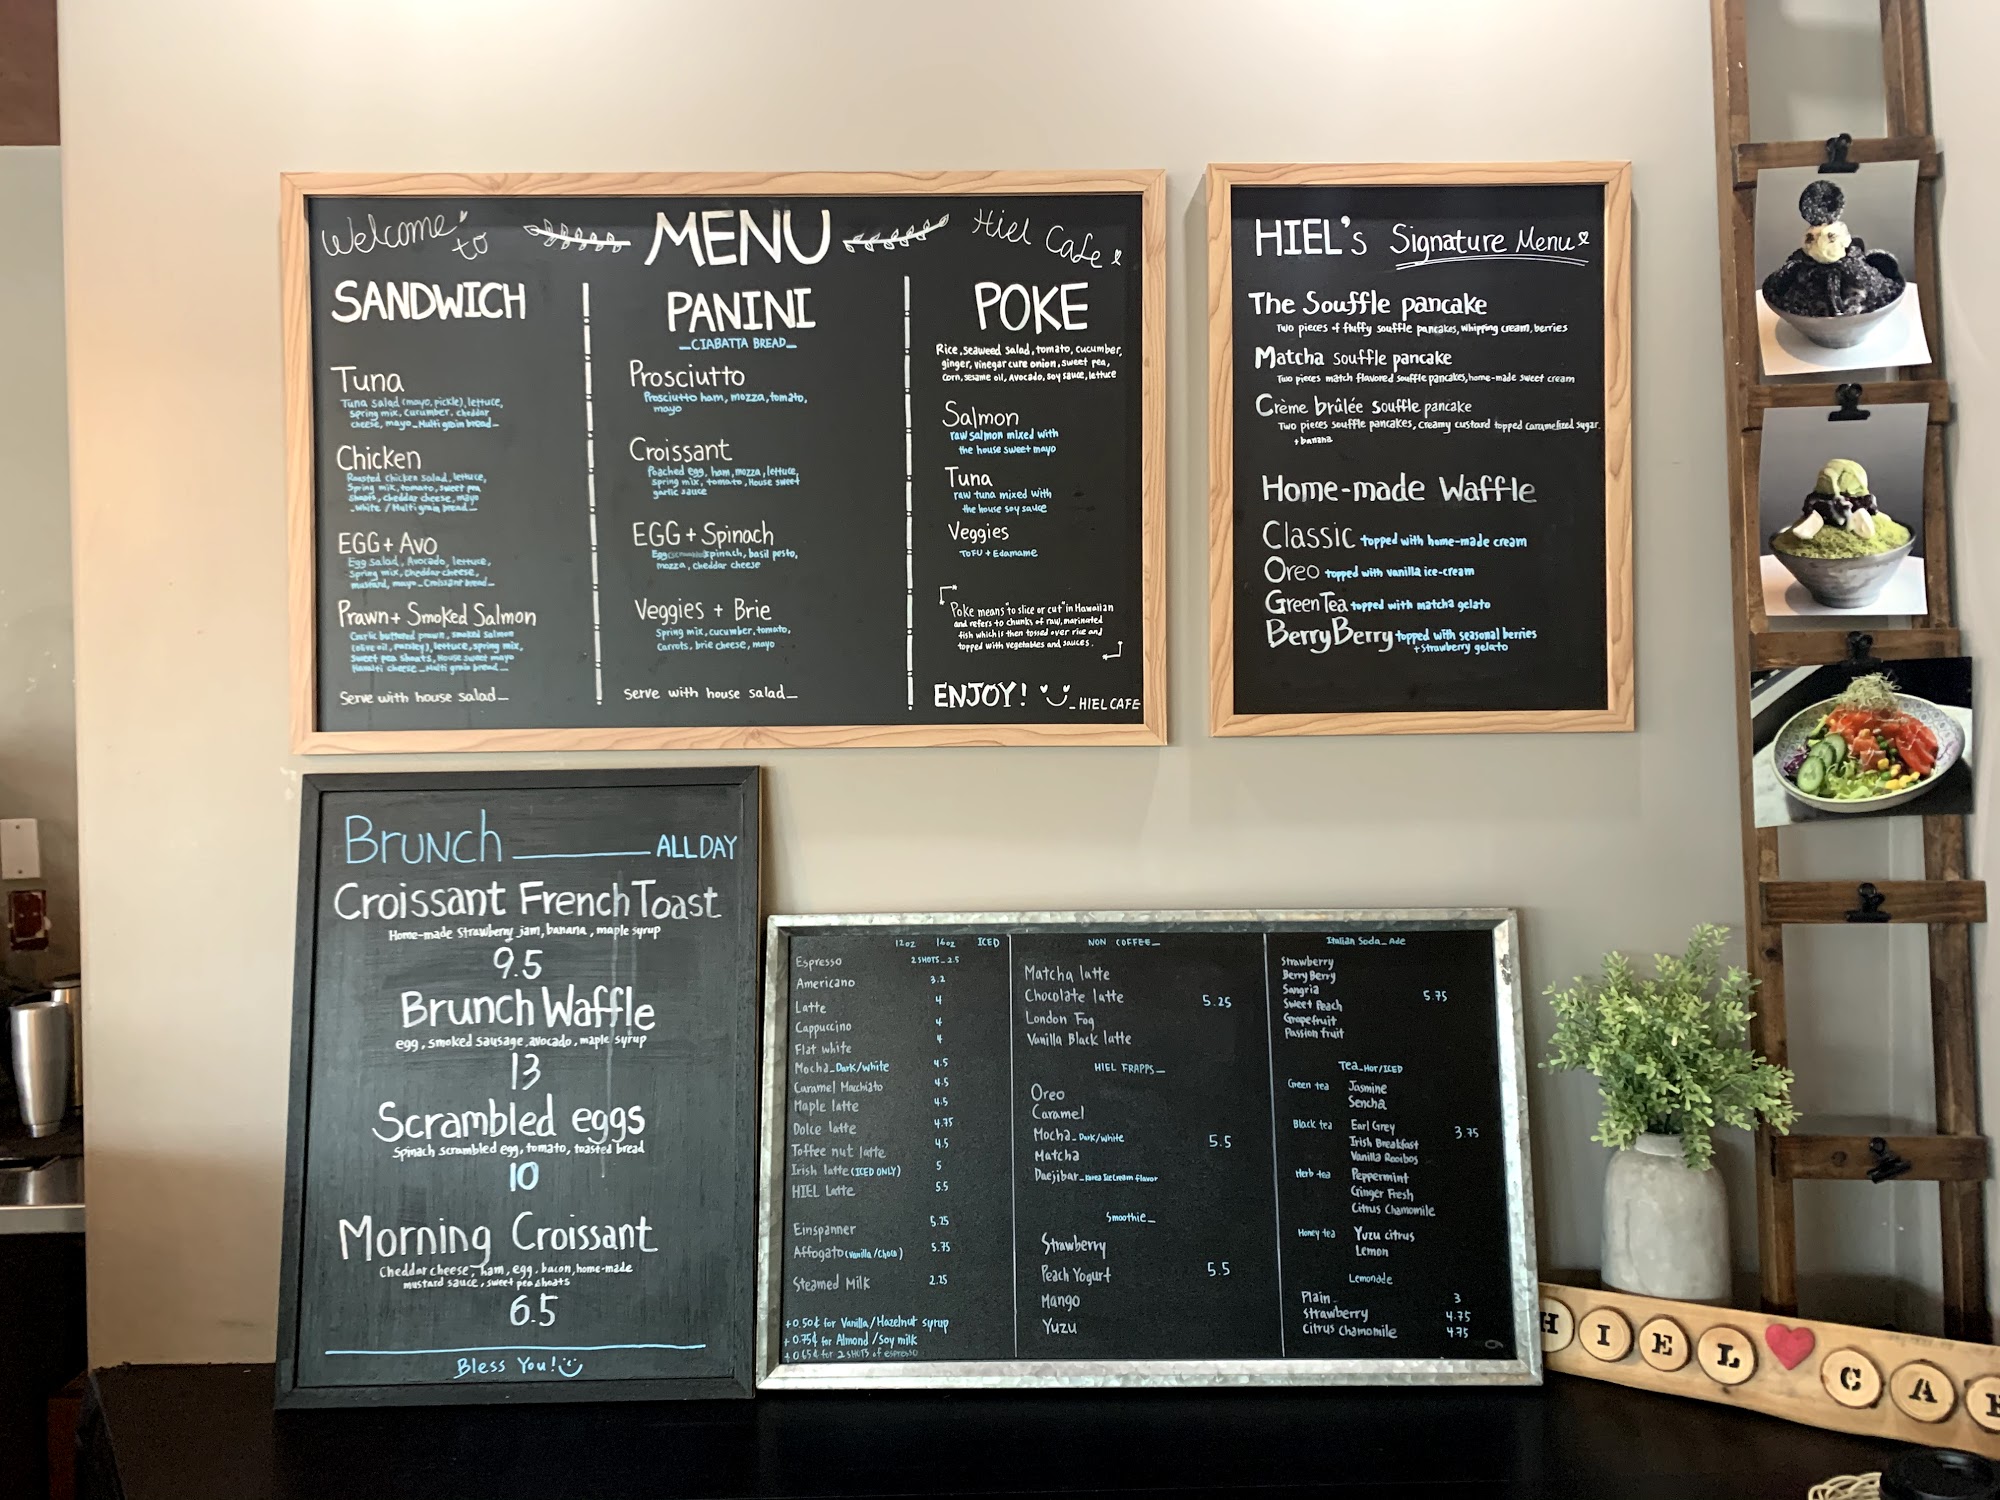 Welcome to
MENU
Hiel Cafe
SANDWICH
Tuna
Tuna salad (mayo, pickle), lettuce,
spring mix, cucumber, cheddar
cheese, mayo_Multi grain bread_
Chicken
Roasted chicken salad, lettuce,
Spring mix, tomato, sweet pea
shoats, cheddar cheese, mayo
_White / Multi grain bread_
EGG + Avo
Egg salad, Avocado, lettuce,
Spring mix, cheddar cheese,
mustard, mayo_Croissant bread_
Prawn + Smoked Salmon
Garlic buttered prawn, smoked salmon
(olive oil, parsley), lettuce, spring mix,
Sweet pea shoats, House sweet mayo
Havalti cheese_Multi grain bread_
Serve with house salad_
PANINI
_CIABATTA BREAD_
Prosciutto
Prosciutto ham, mozza, tomato,
mayo
Croissant
Poached egg, ham, mozza, lettuce,
spring mix, tomato, House sweet
garlic sauce
EGG + Spinach
Egg spinach, basil pesto,
mozza, cheddar cheese
Veggies + Brie
Spring mix, cucumber, tomato,
Carrots, brie cheese, mayo
Serve with house salad_
POKE
Rice, seaweed salad, tomato, cucumber,
ginger, vinegar cure onion, sweet pea,
corn, sesame oil, Avocado, soy sauce, lettuce
Salmon
raw salmon mixed with
the house sweet mayo
Tuna
raw tuna mixed with
the house soy sauce
Veggies
TOFU + Edamame
Poke means "to slice or cut" in Hawaiian
and refers to chunks of raw, marinated
fish which is then tossed over rice and
topped with vegetables and sauces.
ENJOY! _HIEL CAFE
HIEL's Signature Menu
The Souffle pancake
Two pieces of fluffy souffle pancakes, whipping cream, berries
Matcha souffle pancake
Two pieces match flavored souffle pancakes, home-made sweet cream
Crème brûlée souffle pancake
Two pieces souffle pancakes, creamy custard topped caramelized sugar.
+ banana
Home-made Waffle
Classic topped with home-made cream
Oreo topped with vanilla ice-cream
Green Tea topped with matcha gelato
Berry Berry topped with seasonal berries
+ strawberry gelato
Brunch ALL DAY
Croissant French Toast
Home-made strawberry jam, banana, maple syrup
9.5
Brunch Waffle
egg, smoked sausage, avocado, maple syrup
13
Scrambled eggs
Spinach scrambled egg, tomato, toasted bread
10
Morning Croissant
Cheddar cheese, ham, egg, bacon, home-made
mustard sauce, sweet pea shoats
6.5
Bless You!
12oz 16oz ICED
Espresso 2 SHOTS_2.5
Americano 3.2
Latte 4
Cappuccino 4
Flat white 4
Mocha_Dark/White 4.5
Caramel Macchiato 4.5
Maple latte 4.5
Dolce latte 4.75
Toffee nut latte 4.5
Irish latte (ICED ONLY) 5
HIEL Latte 5.5
Einspanner 5.25
Affogato (Vanilla/Choco) 5.75
Steamed Milk 2.25
+0.50¢ for Vanilla/Hazelnut syrup
+0.75¢ for Almond/Soy milk
+0.65¢ for 2 SHOTS of espresso
NON COFFEE_
Matcha latte
Chocolate latte 5.25
London Fog
Vanilla Black latte
HIEL FRAPPS_
Oreo
Caramel
Mocha_Dark/White 5.5
Matcha
Daejibar_Korea Ice Cream flavor
Smoothie_
Strawberry
Peach Yogurt 5.5
Mango
Yuzu
Italian Soda_Ade
Strawberry
Berry Berry
Sangria 5.75
Sweet Peach
Grapefruit
Passion fruit
Tea_HOT/ICED
Green tea Jasmine
Sencha
Black tea Earl Grey 3.75
Irish Breakfast
Vanilla Rooibos
Herb tea Peppermint
Ginger Fresh
Citrus Chamomile
Honey tea Yuzu citrus
Lemon
Lemonade
Plain 3
Strawberry 4.75
Citrus Chamomile 4.75
HIEL CA